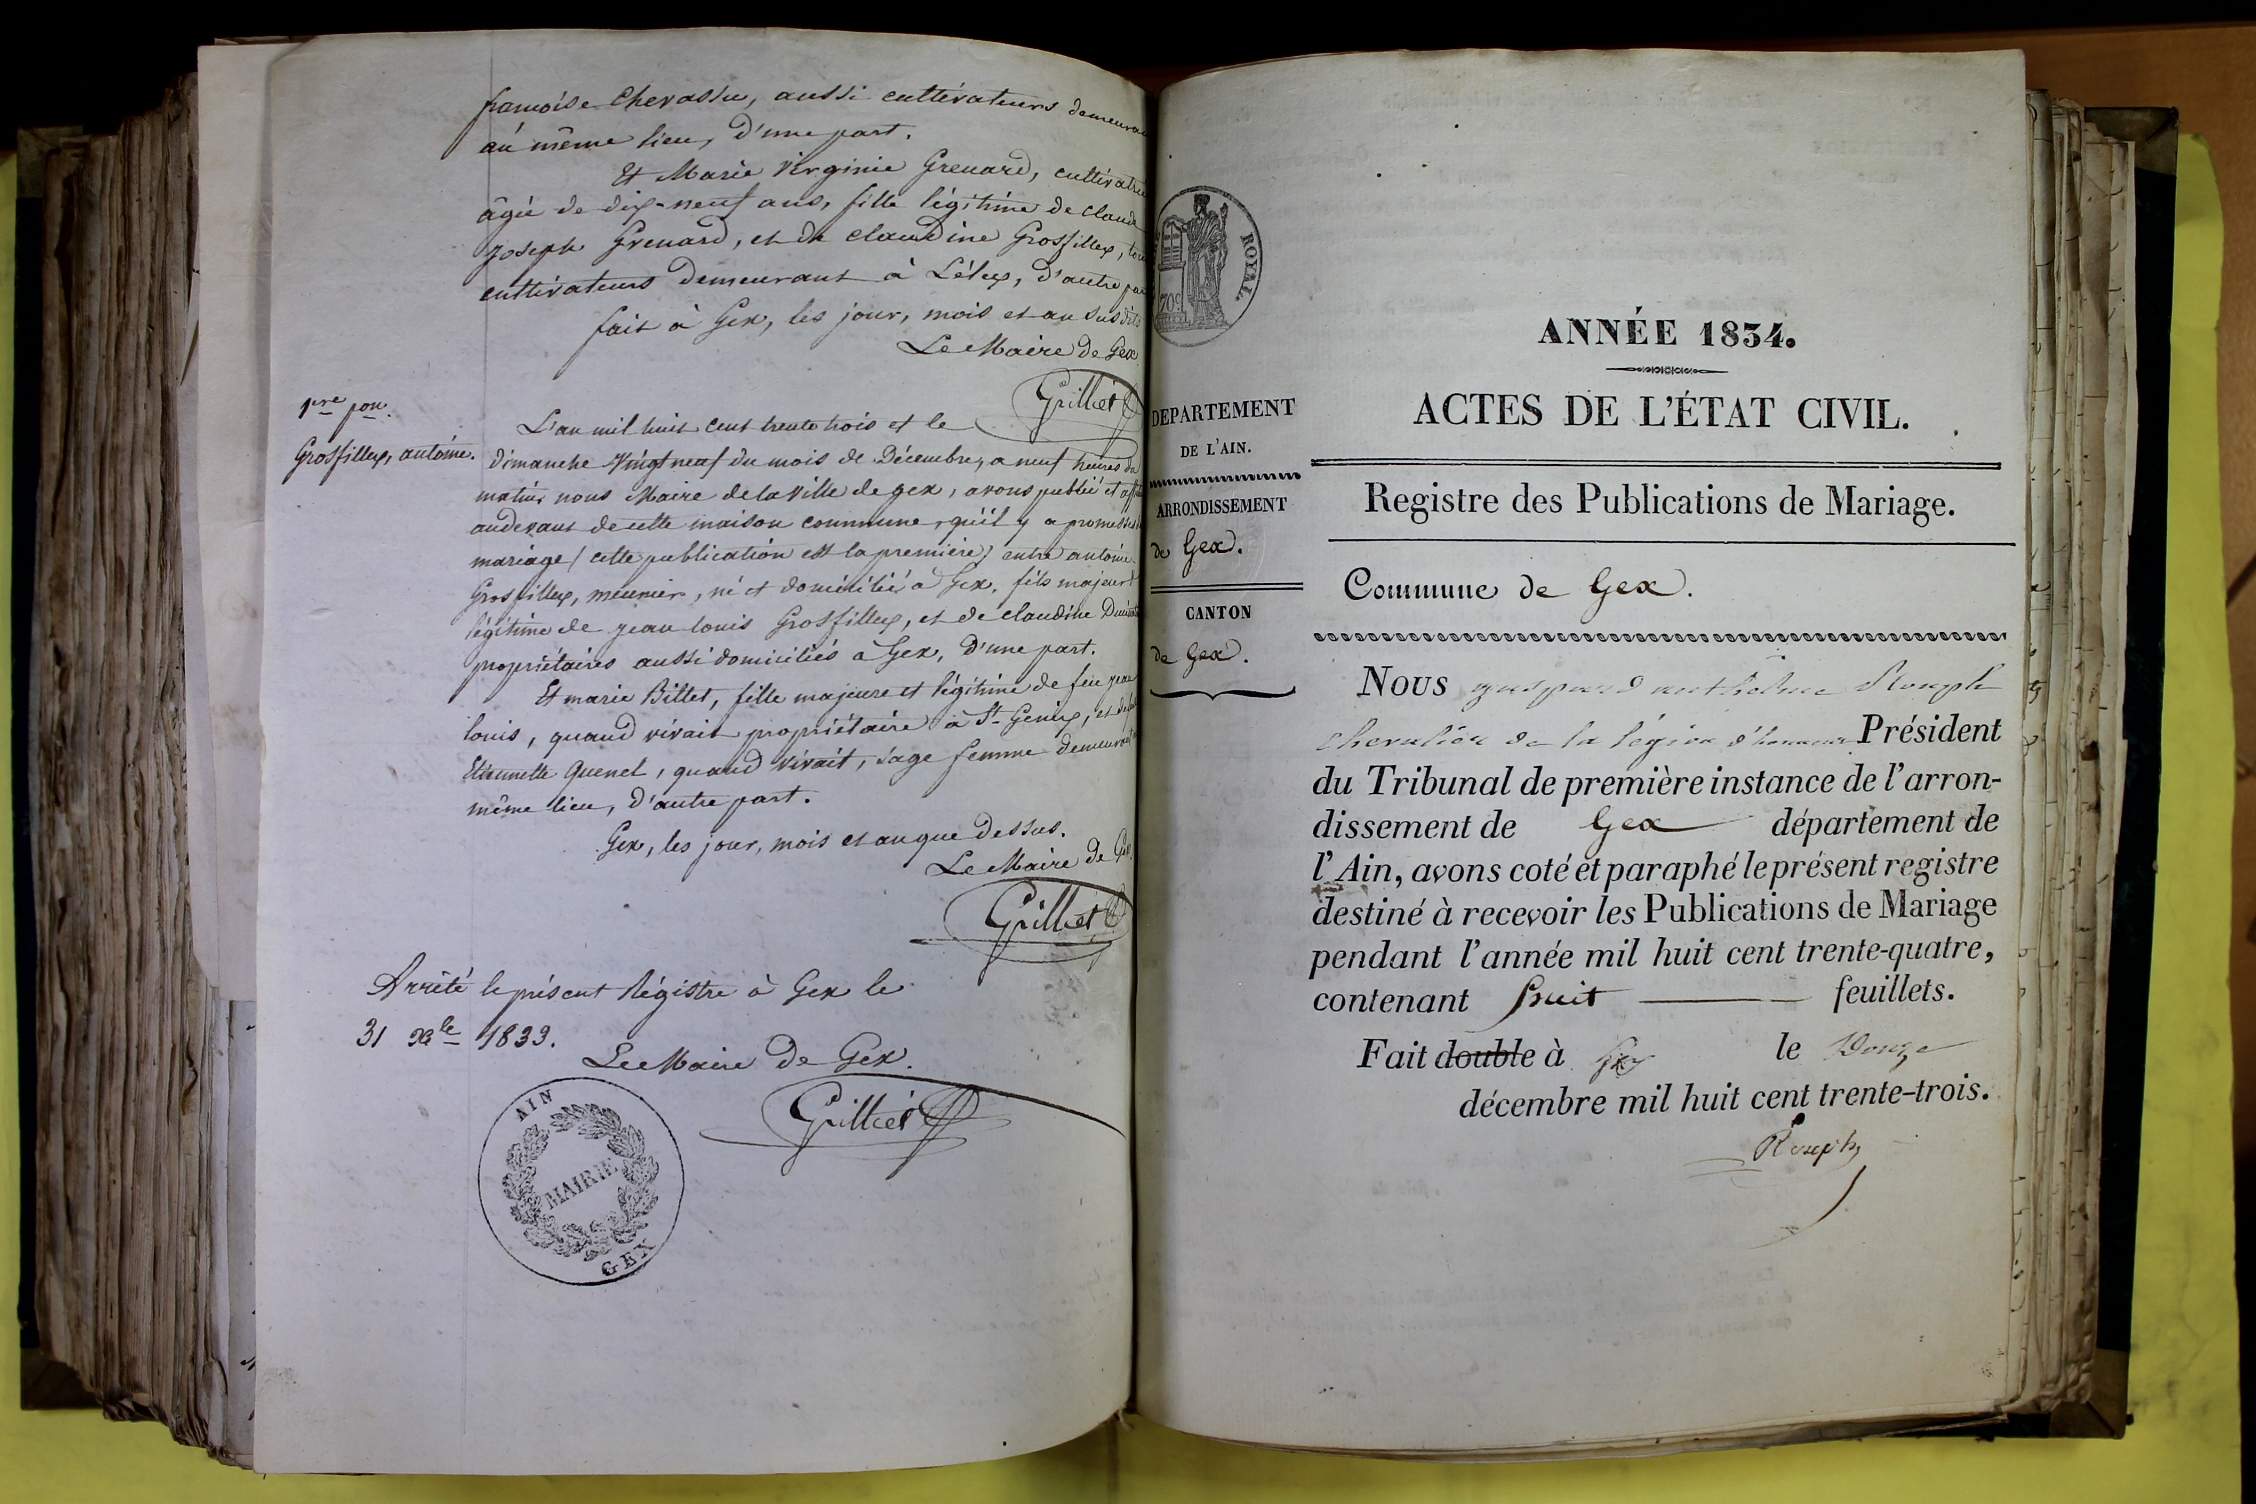 françoise Chevassu, aussi cultivateurs
au même lieu, d'une part.
Et Marie Virginie Grenard,
âgée de dix-neuf ans, fille légitime de Claude
Joseph Grenard, et de claudine Grosfilley,
cultivateurs demeurant à Lélex, d'autre
fait à Gex, les jour, mois et an susdits
Le Maire de Gex
Grilliet
1re pon.
Grosfilley, antoine.
L'an mil huit cent trente trois et le
dimanche vingt neuf du mois de Décembre, a neuf heures du
matin, nous Maire de la ville de gex, avons publié et
audevant de cette maison commune, qu'il y a promesse
mariage (cette publication est la première) entre antoine
Grosfilley, meunier, né et domicilié à Gex, fils majeur
légitime de jean louis Grosfilley, et de claudine
propriétaires aussi domiciliés à Gex, d'une part.
Et marie Billet, fille majeure et légitime de feu jean
louis, quand vivait propriétaire à St Genix, et
Etiennette Quenet, quand vivait, sage femme
même lieu, d'autre part.
Gex, les jour, mois et an que dessus.
Le Maire de Gex
Grilliet
Arrêté le présent Régistre à Gex le
31 Xbre 1833.
Le Maire de Gex.
Grilliet
AIN
MAIRIE
GEX
ROYAL.
70c
DEPARTEMENT
DE L'AIN.
ARRONDISSEMENT
de Gex.
CANTON
de Gex.
ANNÉE 1834.
ACTES DE L'ÉTAT CIVIL.
Registre des Publications de Mariage.
Commune de Gex.
Nous
chevalier de la légion d'honneur Président
du Tribunal de première instance de l'arron-
dissement de Gex département de
l'Ain, avons coté et paraphé le présent registre
destiné à recevoir les Publications de Mariage
pendant l'année mil huit cent trente-quatre,
contenant huit feuillets.
Fait double à Gex le Douze
décembre mil huit cent trente-trois.